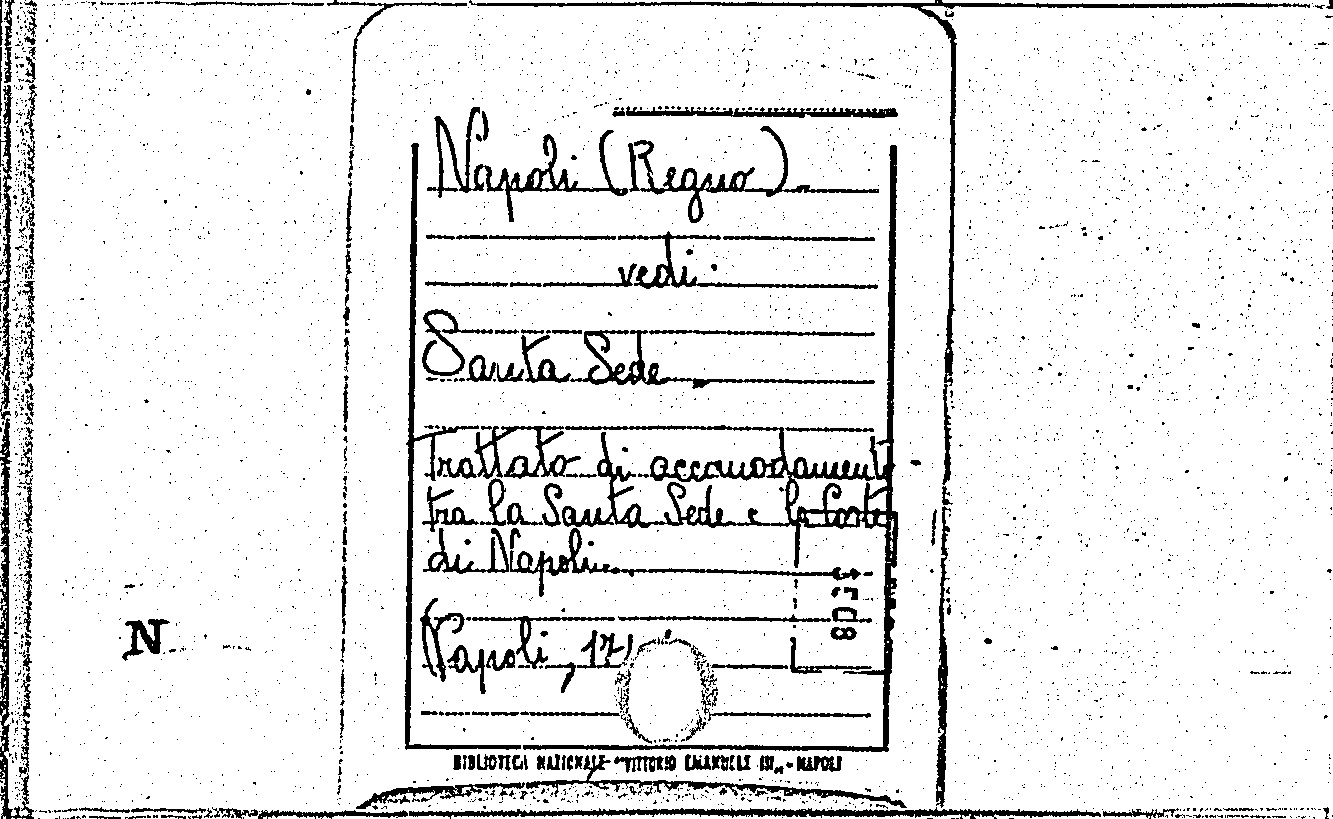 Napoli (Regno).
vedi:
Santa Sede.
Trattato di accomodamento
tra la Santa Sede e la Corte
di Napoli.
Napoli, 17
N
BIBLIOTECA NAZIONALE "VITTORIO EMANUELE III" - NAPOLI